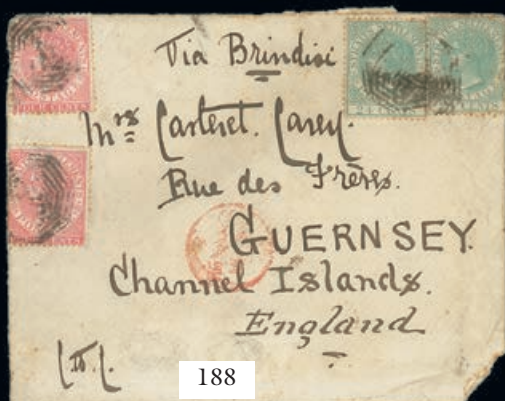 Via Brindisi
FOUR CENTS
CENTS
Mrs Carteret. Carey.
Rue des Frères.
GUERNSEY.
Channel Islands.
England
188